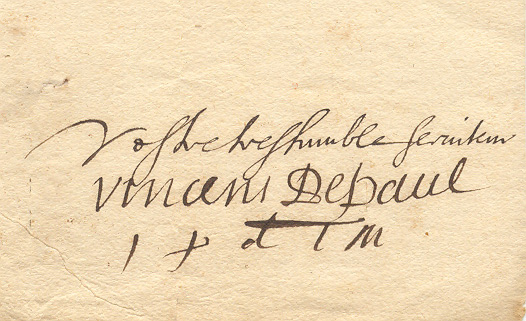 Vostre tres humble seruiteur
Vincent Depaul
i p d l m